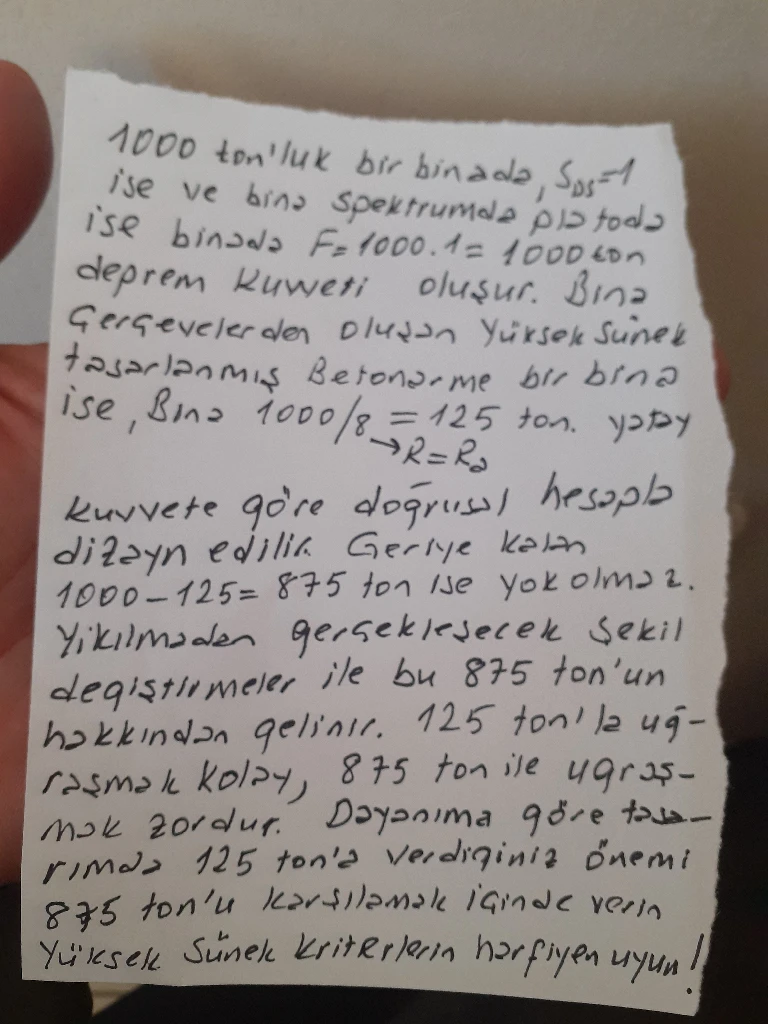 1000 ton'luk bir binada, SDS=1
ise ve bina spektrumda platoda
ise binada F=1000.1=1000ton
deprem kuvveti oluşur. Bina
Çerçevelerden oluşan Yüksek Sünek
tasarlanmış Betonarme bir bina
ise, Bina 1000/8 = 125 ton. yatay
→R=Ra
kuvvete göre doğrusal hesapla
dizayn edilir. Geriye kalan
1000-125= 875 ton ise yok olmaz.
Yıkılmadan gerçekleşecek şekil
değiştirmeler ile bu 875 ton'un
hakkından gelinir. 125 ton'la uğ-
raşmak kolay, 875 ton ile uğraş-
mak zordur. Dayanıma göre tasa-
rımda 125 ton'a verdiğiniz önemi
875 ton'u karşılamak içinde verin
Yüksek Sünek kriterlerin harfiyen uyun!